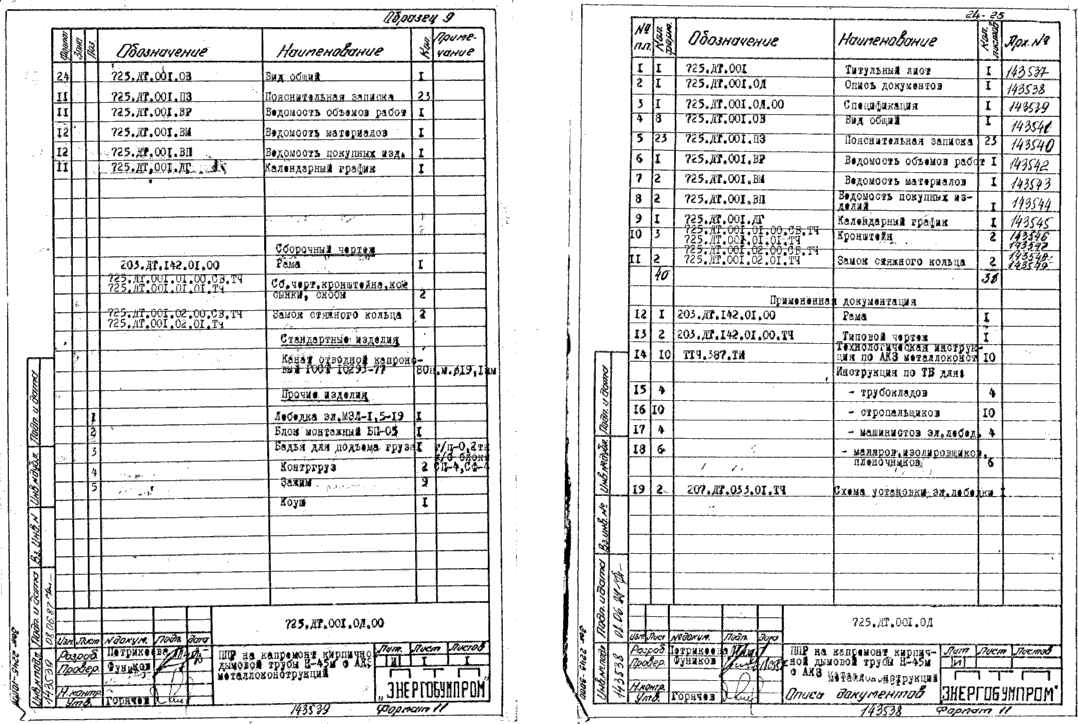 Образец 9
Формат Зона Поз. Обозначение Наименование Кол. Приме-
чание
24 725.ЛТ.001.ОВ Вид общий I
II 725.ЛТ.001.ПЗ Пояснительная записка 23
II 725.ЛТ.001.ВР Ведомость объемов работ I
I2 725.ЛТ.001.ВМ Ведомость материалов I
I2 725.ЛТ.001.ВП Ведомость покупных изд. I
II 725.ЛТ.001.ЛГ Календарный график I
Сборочный чертеж
203.ЛТ.I42.0I.00 Рама I
725.ЛТ.001.01.00.СБ.ТЧ Сб.черт.кронштейна,ко
725.ЛТ.001.01.01.ТЧ сынки, скобы 2
725.ЛТ.001.02.00.СБ.ТЧ Замок стяжного кольца 2
725.ЛТ.001.02.01.ТЧ
Стандартные изделия
Канат отводной капроно-
вый ГОСТ 10293-77 80п.м.ø19,1мм
Прочие изделия
1 Лебедка эл.МЭЛ-I,5-I9 I
2 Блок монтажный БП-05 I
3 Бадья для подъема груза I г/п-0,2тн
4 Контргруз 2 СП-4,СФ-4
5 Зажим 9
Коуш I
Взам. Инв. N
Подп. и дата
08.06.87
Инв.№подл.
143539
725.ЛТ.001.ОД.00
Изм. Лист N докум. Подп. дата
Разраб. Петрикеева
Провер. Фуников
Н.контр.
Утв. Горячев
ППР на капремонт кирпично
дымовой трубы Н-45м с АКЗ
металлоконструкций
Лит. Лист Листов
И I I
"ЭНЕРГОБУМПРОМ"
143539 Формат 11
24-25
№ п.п. Кол. форм. Обозначение Наименование Кол. листов Арх.№
I I 725.ЛТ.001 Титульный лист I 143537
2 I 725.ЛТ.001.ОД Опись документов I 143538
3 I 725.ЛТ.001.ОД.00 Спецификация I 143539
4 8 725.ЛТ.001.ОВ Вид общий I 143541
5 23 725.ЛТ.001.ПЗ Пояснительная записка 23 143540
6 I 725.ЛТ.001.ВР Ведомость объемов работ I 143542
7 2 725.ЛТ.001.ВМ Ведомость материалов I 143543
8 2 725.ЛТ.001.ВП Ведомость покупных из-
делий I 143544
9 I 725.ЛТ.001.ЛГ Календарный график I 143545
10 3 725.ЛТ.001.01.00.СБ.ТЧ Кронштейн 2 143546
725.ЛТ.001.01.01.ТЧ 143547
II 2 725.ЛТ.001.02.00.СБ.ТЧ Замок стяжного кольца 2 143548
725.ЛТ.001.02.01.ТЧ 143549
40 38
Примененная документация
I2 I 203.ЛТ.I42.0I.00 Рама I
I3 2 203.ЛТ.I42.0I.00.ТЧ Типовой чертеж I
I4 10 ТТЧ.387.ТИ Технологическая инструк-
ция по АКЗ металлоконст 10
Инструкция по ТБ для:
I5 4 - трубокладов 4
I6 10 - стропальщиков 10
I7 4 - машинистов эл.лебед. 4
I8 6 - маляров,изолировщиков,
пленочников 6
I9 2 207.ЛТ.053.0I.ТЧ Схема установки эл.лебедки I
Взам. Инв. №
Подп. и дата
Инв.№подл.
143538
725.ЛТ.001.ОД
Изм. Лист №докум. Подп. Дата
Разраб. Петрикеева
Провер. Фуников
Н.контр.
Утв. Горячев
ППР на капремонт кирпич-
ной дымовой трубы Н-45м
с АКЗ металлоконструкций
Опись документов
Лит Лист Листов
И
"ЭНЕРГОБУМПРОМ"
143538 Формат 11